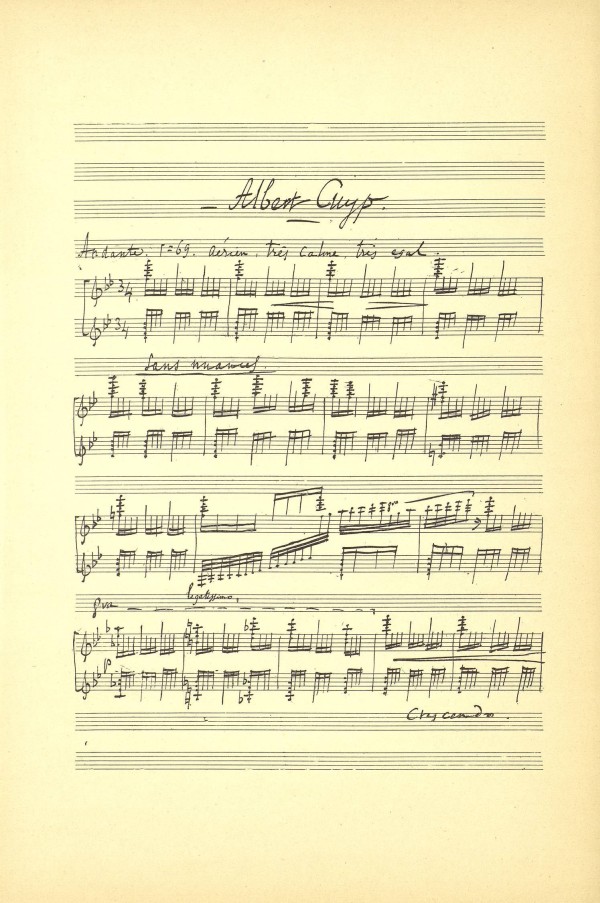 Albert Cuyp.
Andante. ♩=69. aérien, très calme, très égal.
3/4
3/4
Sans nuances.
8va
legatissimo.
8va
p
Crescendo.